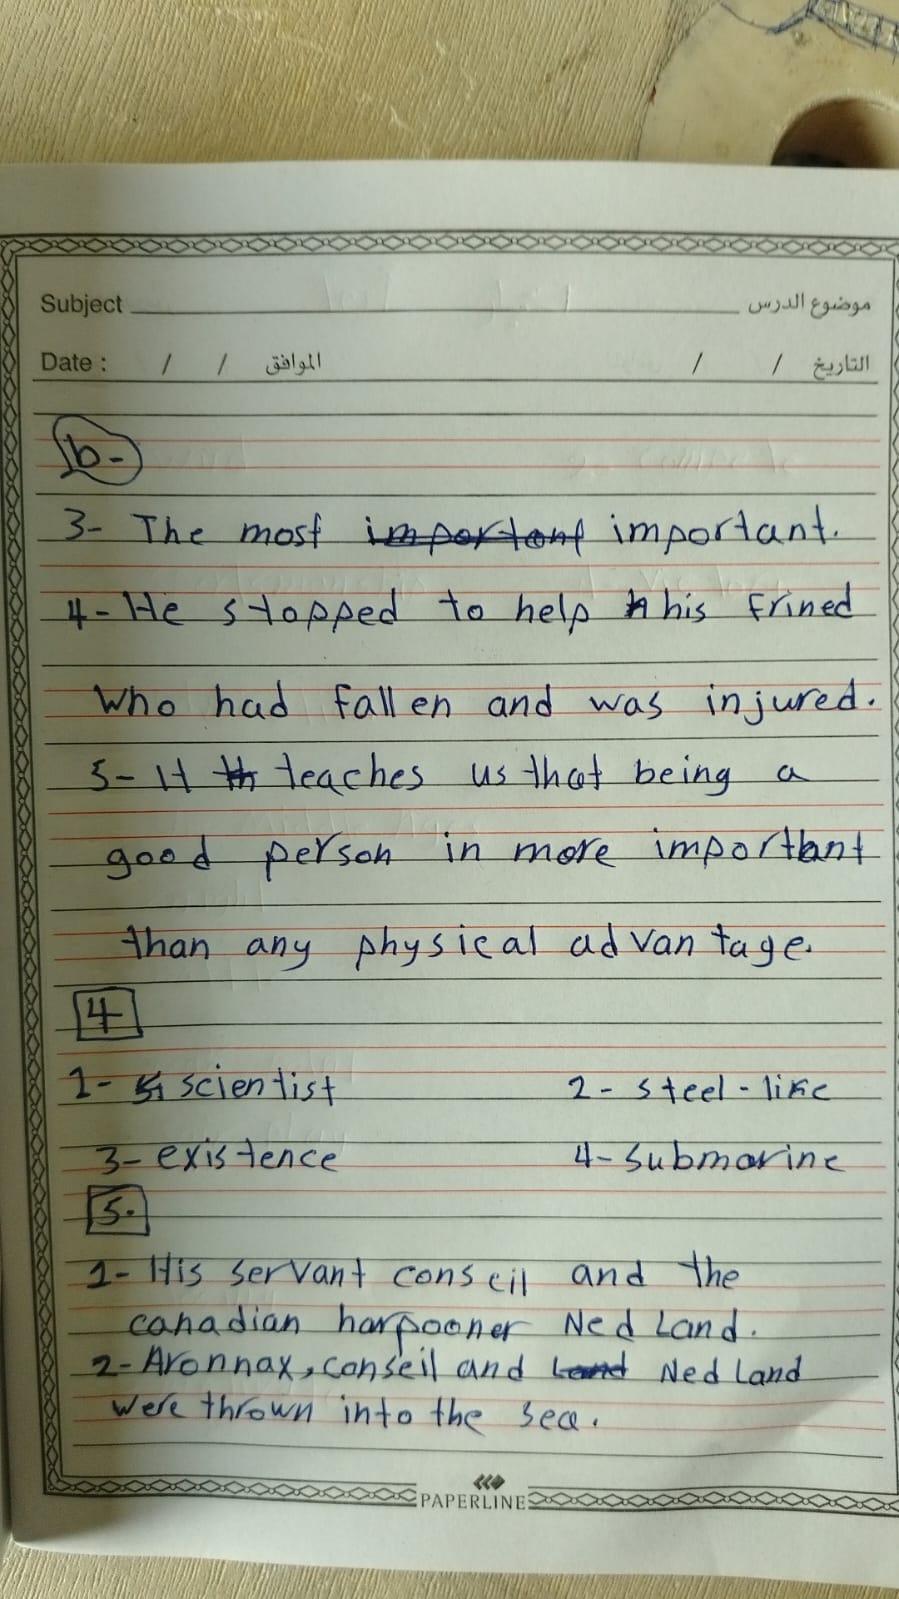 Subject موضوع الدرس
Date : / / الموافق / / التاريخ
b-
3- The most important important.
4- He stopped to help h his frined
who had fallen and was injured.
5- It th teaches us that being a
good person in more important
than any physical advantage.
4
1- scientist 2- steel-like
3- existence 4- submarine
5-
1- His servant conseil and the
canadian harpooner Ned Land.
2- Aronnax, conseil and Land Ned Land
were thrown into the sea.
PAPERLINE